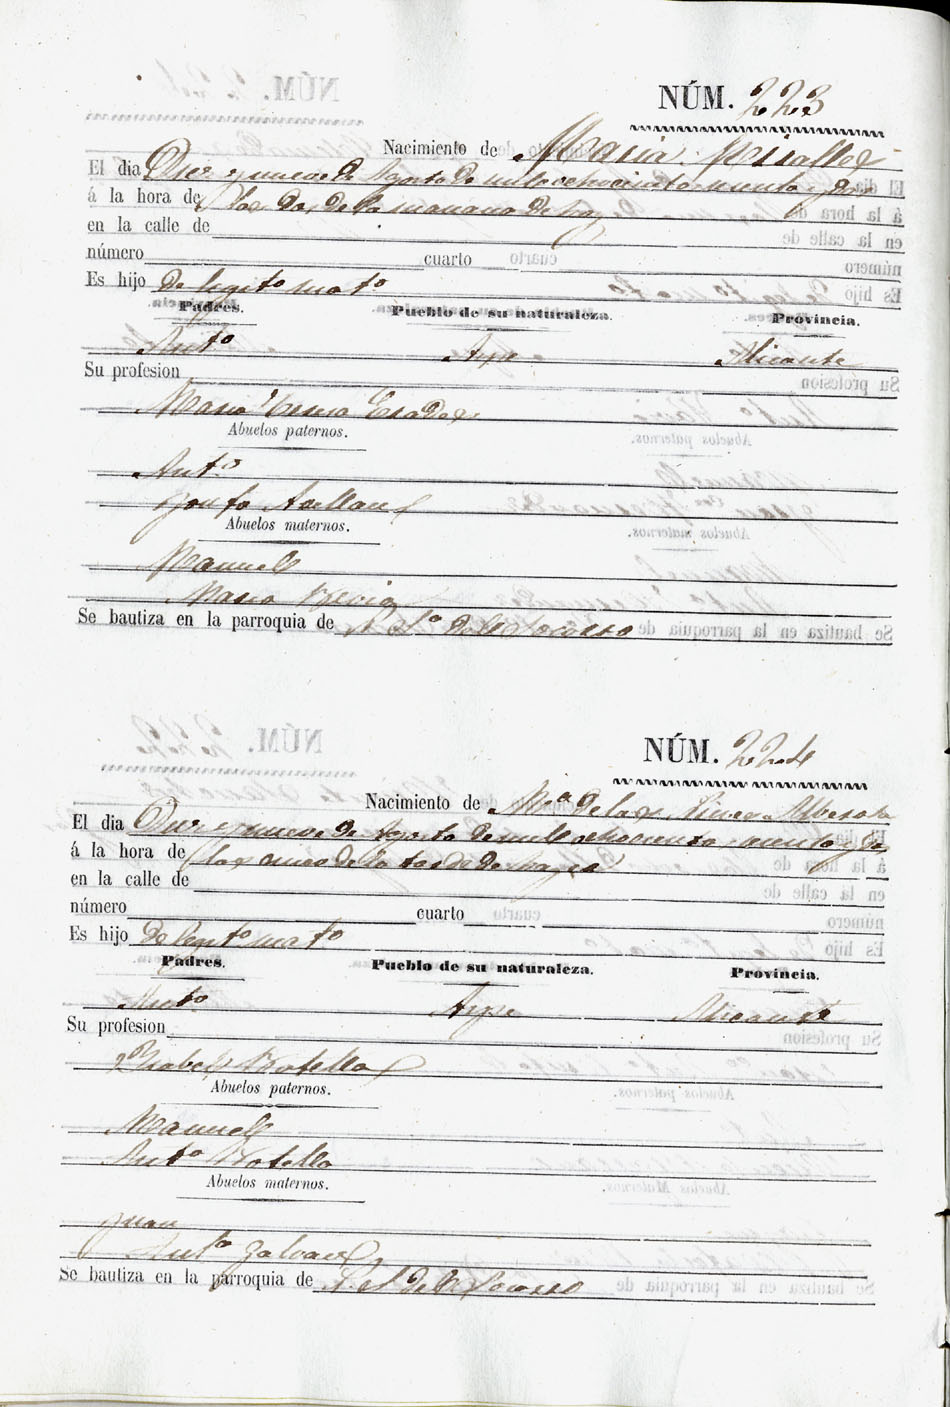 NÚM. 223
Nacimiento de Maria Miralles
El dia Diez y nueve de Agosto de mil ochociento sesenta y dos
á la hora de las dos de la mañana de hoy
en la calle de
número cuarto
Es hijo de legitº matº
Padres. Pueblo de su naturaleza. Provincia.
Antº Aspe Alicante
Su profesion
Maria Teresa
Abuelos paternos.
Antª
Abuelos maternos.
Manuel
Maria
Se bautiza en la parroquia de N Sª del Socorro
NÚM. 224
Nacimiento de Mª de las
El dia Diez y nueve de Agosto de mil ochociento sesenta y dos
á la hora de las cinco de la tarde de
en la calle de
número cuarto
Es hijo de legitº matº
Padres. Pueblo de su naturaleza. Provincia.
Antº Aspe Alicante
Su profesion
Ysabel Botella
Abuelos paternos.
Manuel
Antª Botella
Abuelos maternos.
Juan
Antª Galvañ
Se bautiza en la parroquia de N. S. del Socorro